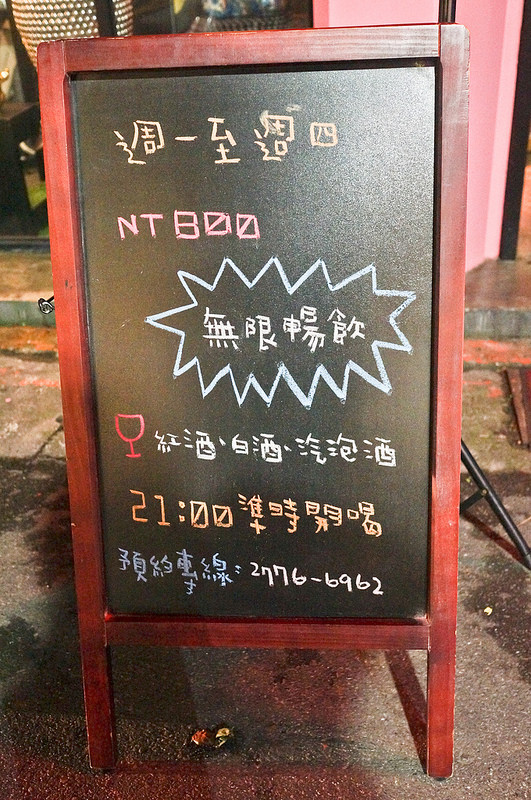 週一至週四
NT800
無限暢飲
紅酒、白酒、汽泡酒
21:00準時開喝
預約專線：2776-6962